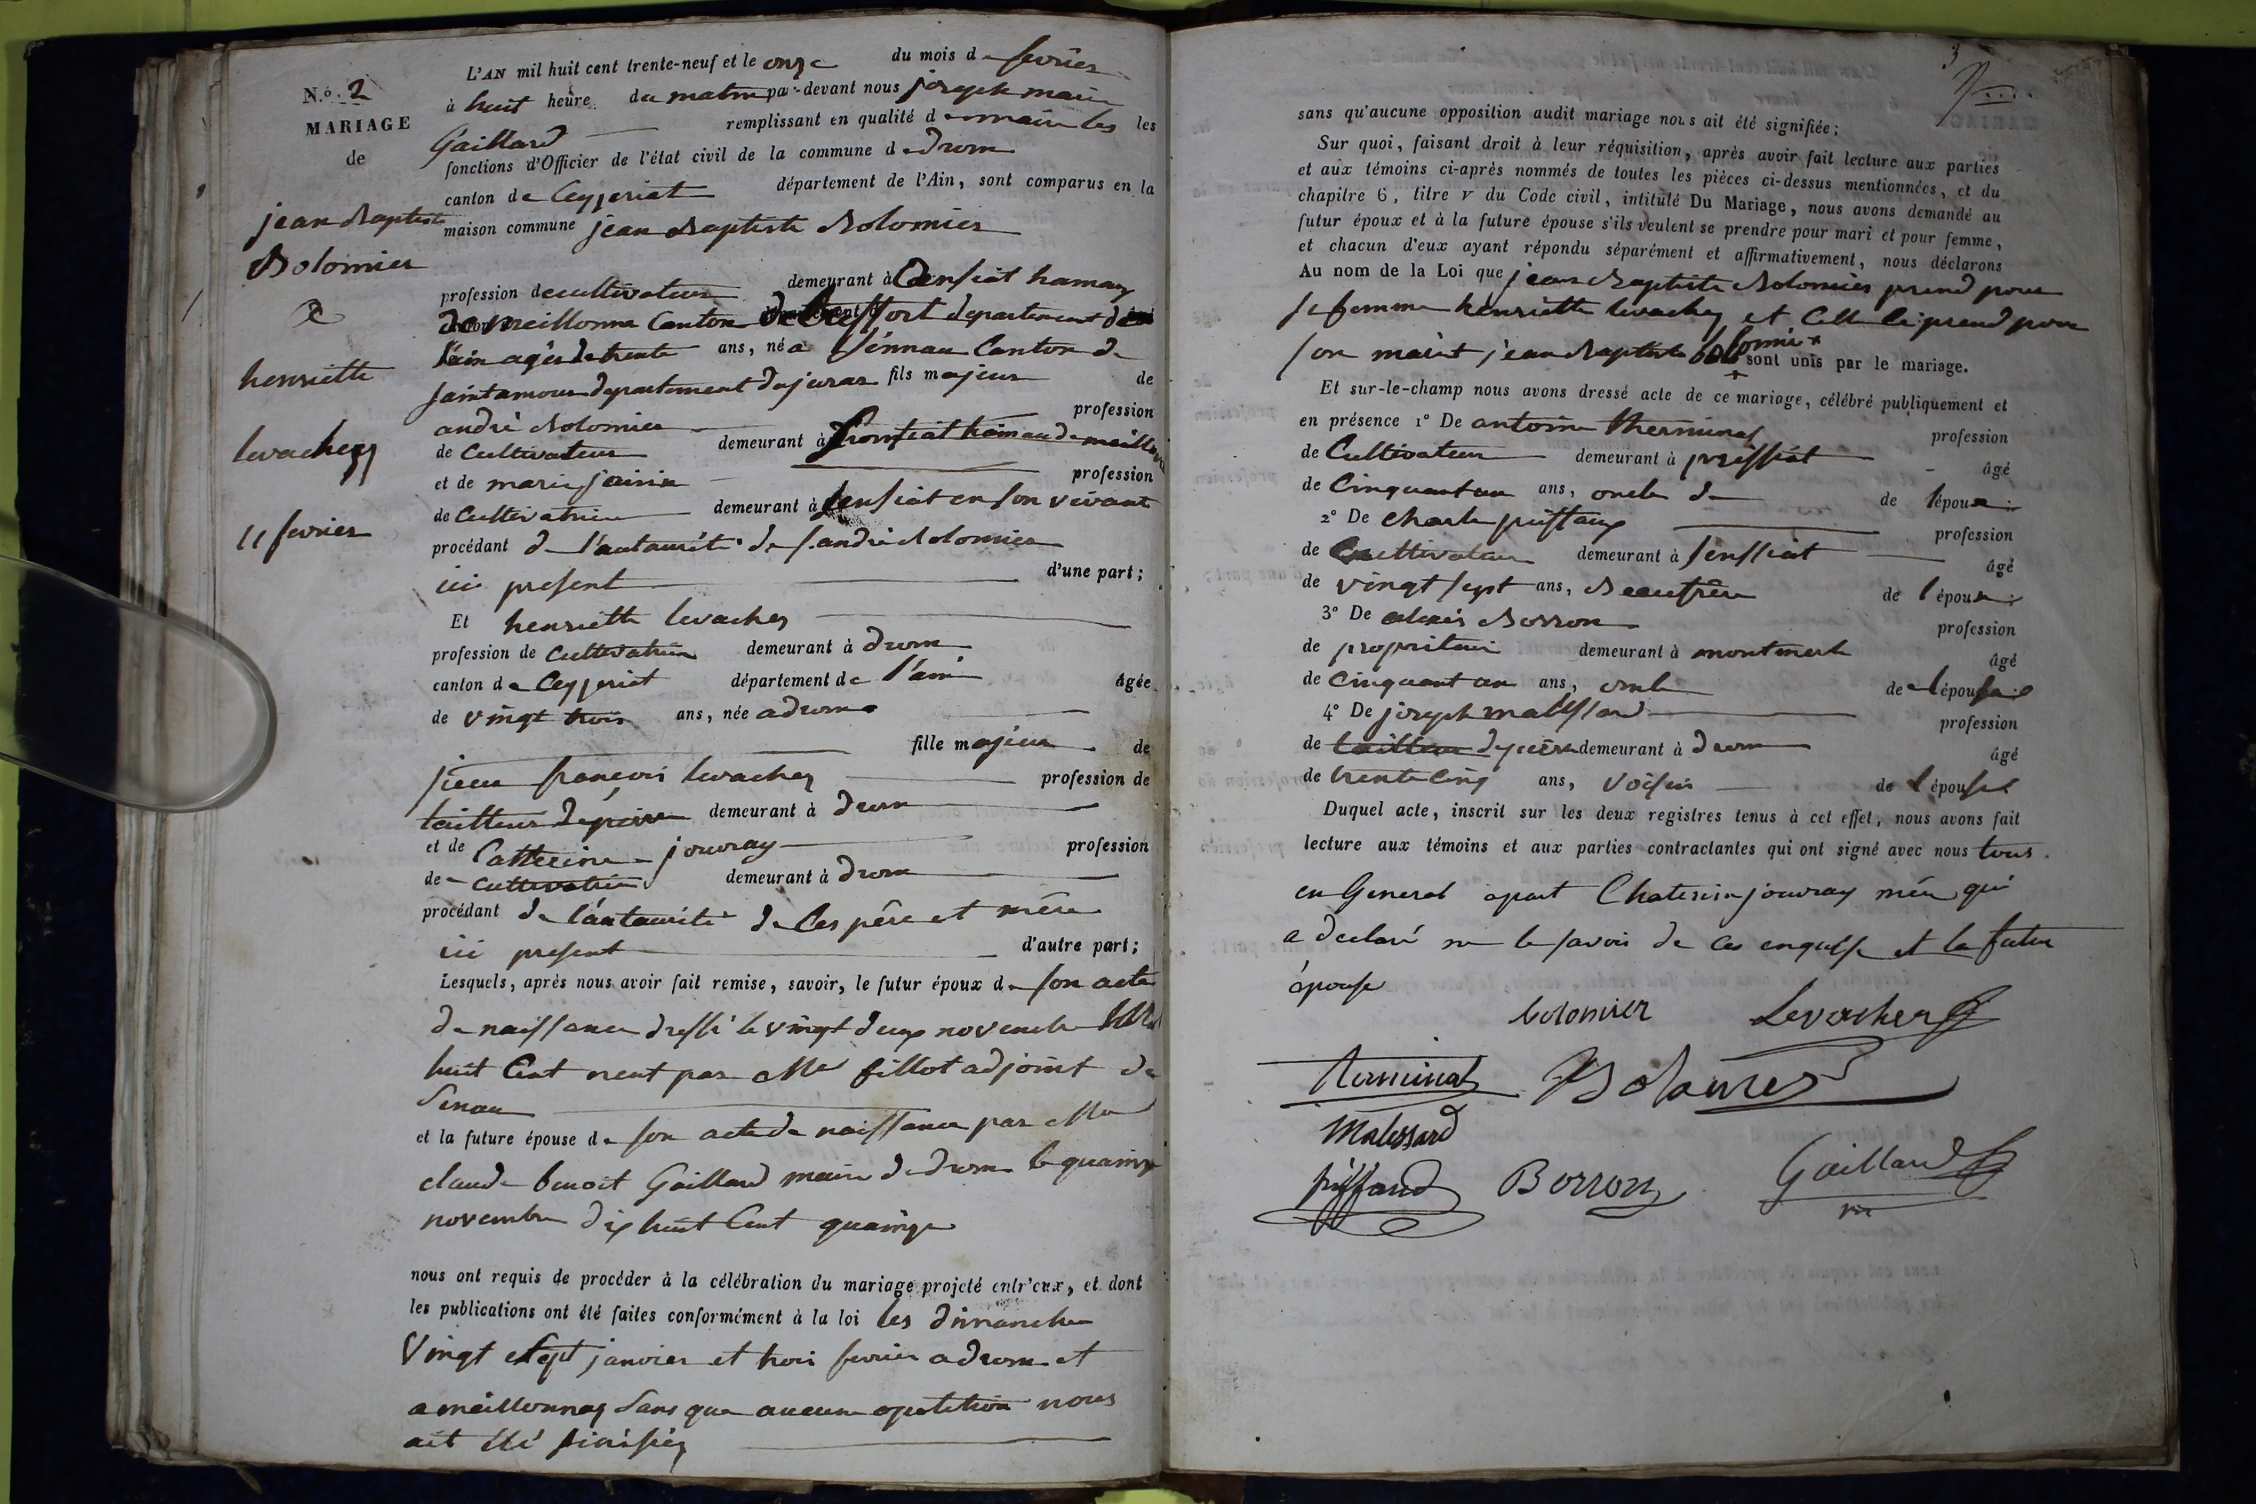 N.º 2
MARIAGE
de
jean Baptiste
Bolomier
&
henriette
levachey
11 fevrier
L'AN mil huit cent trente-neuf et le onze du mois de fevrier
à huit heure du matin par-devant nous joseph marie
Gaillard remplissant en qualité de maire les les
fonctions d'Officier de l'état civil de la commune de drom
canton de Ceyzeriat département de l'Ain, sont comparus en la
maison commune jean Baptiste Bolomier
profession de cultivateur demeurant à Censiat hamau
de meillonna Canton de treffort departement de
l'ain agés de trente ans, né a Sénnau Canton de
saintamour departement dujurar fils majeur de
andré Bolomier profession
de Cultivateur demeurant à Sensiat hamau de meillonna
et de marie profession
de Cultivatrice demeurant à Sensiat en son vivant
procédant de l'autaurité de s. andré Bolomier
ici present d'une part;
Et henriette levachey
profession de Cultivatrice demeurant à drom
canton de Ceyzeriat département de l'ain âgée
de vingt trois ans, née a drom
fille majeur de
jean françois levachey profession de
tailleur depierre demeurant à drom
et de Catterine jouvray profession
de cultivatrice demeurant à drom
procédant de l'autaurité de Ces père et mère
ici present d'autre part;
Lesquels, après nous avoir fait remise, savoir, le futur époux de son acte
de naissance dressé le vingt deux novembre mil
huit Cent neuf par Mr fillot adjoint de
Senau
et la future épouse de son acte de naissance par Mr
claude benoit Gaillard maire de drom le quainze
novembre dix huit Cent quainze
nous ont requis de procéder à la célébration du mariage projeté entr'eux, et dont
les publications ont été faites conformément à la loi les dimanche
Vingt et sept janvier et trois fevrier a drom et
a meillonnay sans que aucune opotition nous
ait été
3
sans qu'aucune opposition audit mariage nous ait été signifiée;
Sur quoi, faisant droit à leur réquisition, après avoir fait lecture aux parties
et aux témoins ci-après nommés de toutes les pièces ci-dessus mentionnées, et du
chapitre 6, titre V du Code civil, intitulé Du Mariage, nous avons demandé au
futur époux et à la future épouse s'ils veulent se prendre pour mari et pour femme,
et chacun d'eux ayant répondu séparément et affirmativement, nous déclarons
Au nom de la Loi que jean Baptiste Bolomier prend pour
se femme henriette levachey et Celle ci prend pour
son mariit jean Baptiste bolomier sont unis par le mariage.
Et sur-le-champ nous avons dressé acte de ce mariage, célébré publiquement et
en présence 1º De antoine therminat profession
de Cultivateur demeurant à âgé
de Cinquant un ans, oncle de de l'époux
2º De Charle piffaux profession
de Cultivateur demeurant à Senssiat âgé
de vingt sept ans, Beaufrère de l'époux
3º De alexis Borron profession
de propritair demeurant à montmerle âgé
de Cinquant un ans, oncle de l'épouse
4º De joseph malessard profession
de tailleur depierre demeurant à drom âgé
de trente cinq ans, Voisin de l'épouse
Duquel acte, inscrit sur les deux registres tenus à cet effet, nous avons fait
lecture aux témoins et aux parties contractantes qui ont signé avec nous tous
en General apart Chaterine jouvray mère qui
a declaré ne le savoir de ces enquise et la futur
épouse
bolomier Levachey
terminat Bolomier
Malessard
piffaud Borron Gaillard